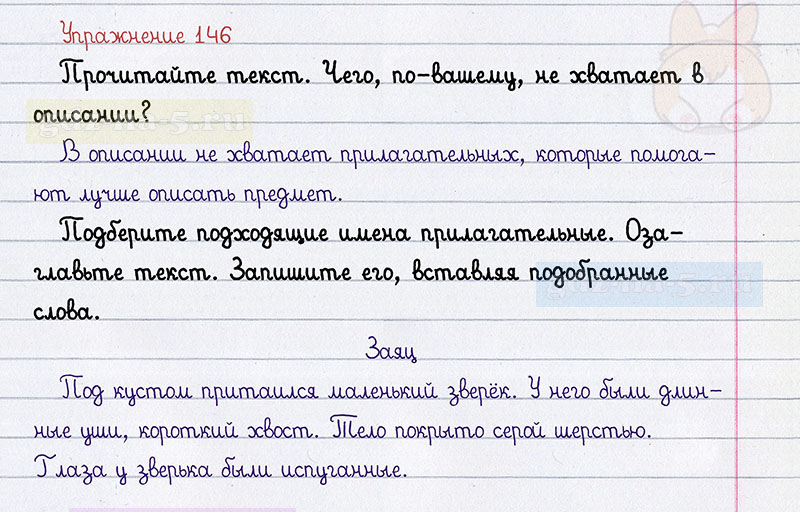 Упражнение 146
Прочитайте текст. Чего, по-вашему, не хватает в
описании?
В описании не хватает прилагательных, которые помога-
ют лучше описать предмет.
Подберите подходящие имена прилагательные. Оза-
главьте текст. Запишите его, вставляя подобранные
слова.
Заяц
Под кустом притаился маленький зверёк. У него были длин-
ные уши, короткий хвост. Тело покрыто серой шерстью.
Глаза у зверька были испуганные.